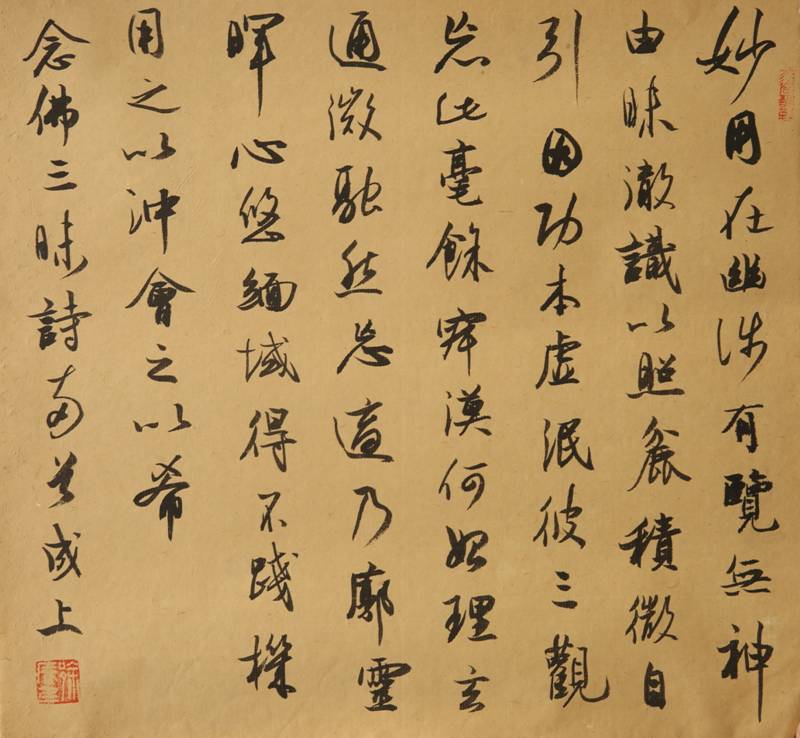 妙用在幽涉有覽無神
由昧澈識以照麁積微自
引因功本虛泯彼三觀
忘此毫餘寂漠何始理玄
通微融然忘適乃廓靈
暉心悠緬域得不踐機
用之以沖會之以希
念佛三昧詩成上